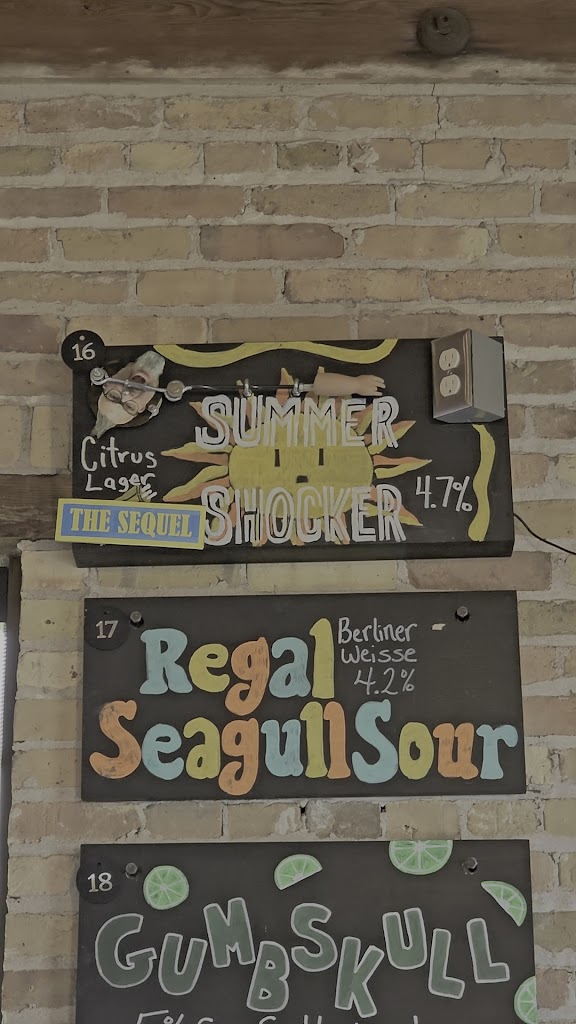 16
SUMMER
SHOCKER
Citrus
Lager
THE SEQUEL
4.7%
17
Regal
Seagull Sour
Berliner
Weisse
4.2%
18
GUMBSKULL
5%